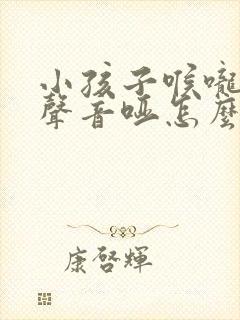 小孩子喉嚨
聲音啞怎麼
康啓輝